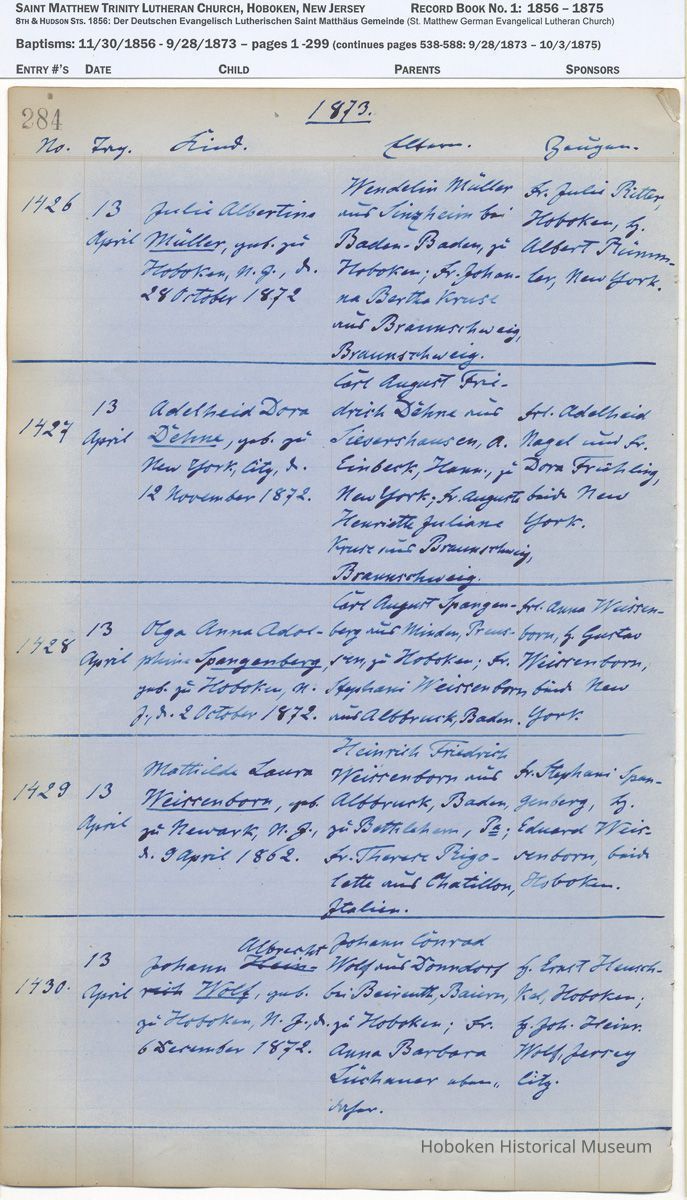 SAINT MATTHEW TRINITY LUTHERAN CHURCH, HOBOKEN, NEW JERSEY RECORD BOOK NO. 1: 1856 – 1875
8TH & HUDSON STS. 1856: Der Deutschen Evangelisch Lutherischen Saint Matthäus Gemeinde (St. Matthew German Evangelical Lutheran Church)
Baptisms: 11/30/1856 - 9/28/1873 – pages 1 -299 (continues pages 538-588: 9/28/1873 – 10/3/1875)
ENTRY #'S DATE CHILD PARENTS SPONSORS
284
1873.
No. Tag. Kind. Eltern. Zeugen.
1426
13
April
Julie Albertine
Müller, geb. zu
Hoboken, N. J., d.
28 October 1872
Wendelin Müller
aus Sinzheim bei
Baden-Baden, zu
Hoboken; Fr. Johan-
na Bertha Kruse
aus Braunschweig,
Braunschweig.
Fr. Julie Ritter,
Hoboken, H.
Albert Rümm-
ler, New York.
1427
13
April
Adelheid Dora
Dehne, geb. zu
New York, City, d.
12 November 1872.
Carl August Frie-
drich Dehne aus
Sievershausen, A.
Einbeck, Hann., zu
New York; Fr. Auguste
Henriette Juliane
Kruse aus Braunschweig,
Braunschweig.
Frl. Adelheid
Nagel und Fr.
Dora Frühling,
beide New
York.
1428
13
April
Olga Anna Adol-
phine Spangenberg,
geb. zu Hoboken, N.
J., d. 2 October 1872.
Carl August Spangen-
berg aus Minden, Preus-
sen, zu Hoboken; Fr.
Stephani Weissenborn
aus Albbruck, Baden.
Frl. Anna Weissen-
born, H. Gustav
Weissenborn,
beide New
York.
1429
13
April
Mathilde Laura
Weissenborn, geb.
zu Newark, N. J.,
d. 9 April 1862.
Heinrich Friedrich
Weissenborn aus
Albbruck, Baden,
zu Bethlehem, Pa;
Fr. Therese Rigo-
lette aus Chatillon,
Italien.
Fr. Stephani Span-
genberg, H.
Eduard Weis-
senborn, beide
Hoboken.
1430.
13
April
Albrecht
Johann Hein-
rich Wolf, geb.
zu Hoboken, N. J., d.
6 December 1872.
Johann Conrad
Wolf aus Donndorf
bei Beireuth, Baiern,
zu Hoboken; Fr.
Anna Barbara
Lüchauer eben„
daher.
H. Ernst Hensch-
kel, Hoboken;
H. Joh. Heinr.
Wolf, Jersey
City.
Hoboken Historical Museum